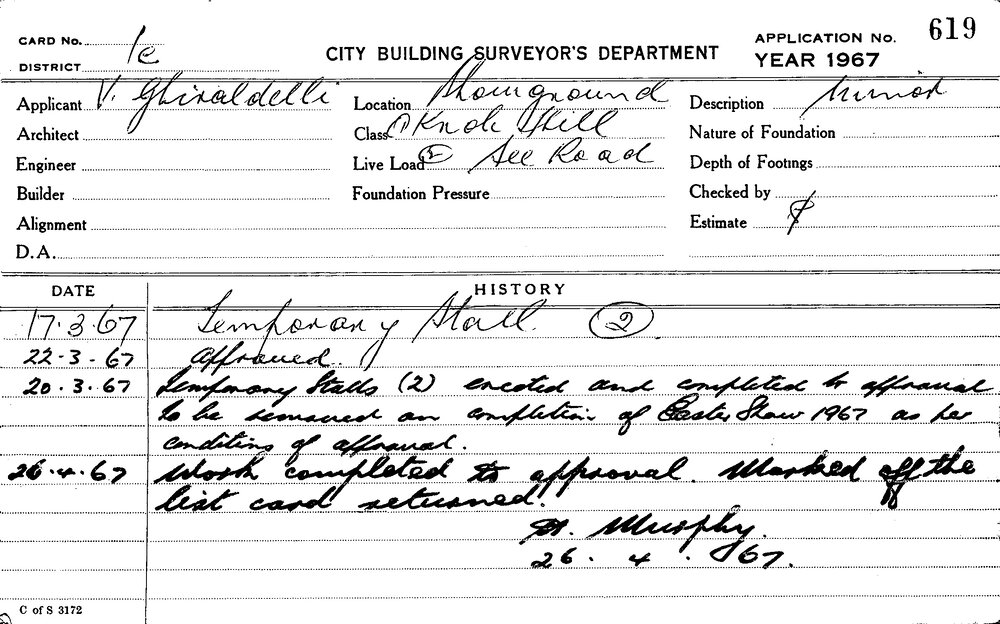 619
CARD No.
CITY BUILDING SURVEYOR'S DEPARTMENT
APPLICATION No.
DISTRICT 1e
YEAR 1967
Applicant V. Ghiraldelli Location Showground Description Minor
Architect Class ① Knok Hill Nature of Foundation
Engineer Live Load ② See Road Depth of Footings
Builder Foundation Pressure Checked by
Alignment Estimate
D.A.
DATE HISTORY
17.3.67 Temporary Stall. ②
22-3-67 Approved.
20.3.67 Temporary Stalls (2) erected and completed to approval
to be removed on completion of Easter Show 1967 as per
conditions of approval.
26.4.67 Work completed to approval. Marked off the
list card returned.
Murphy.
26. 4. 67.
C of S 3172